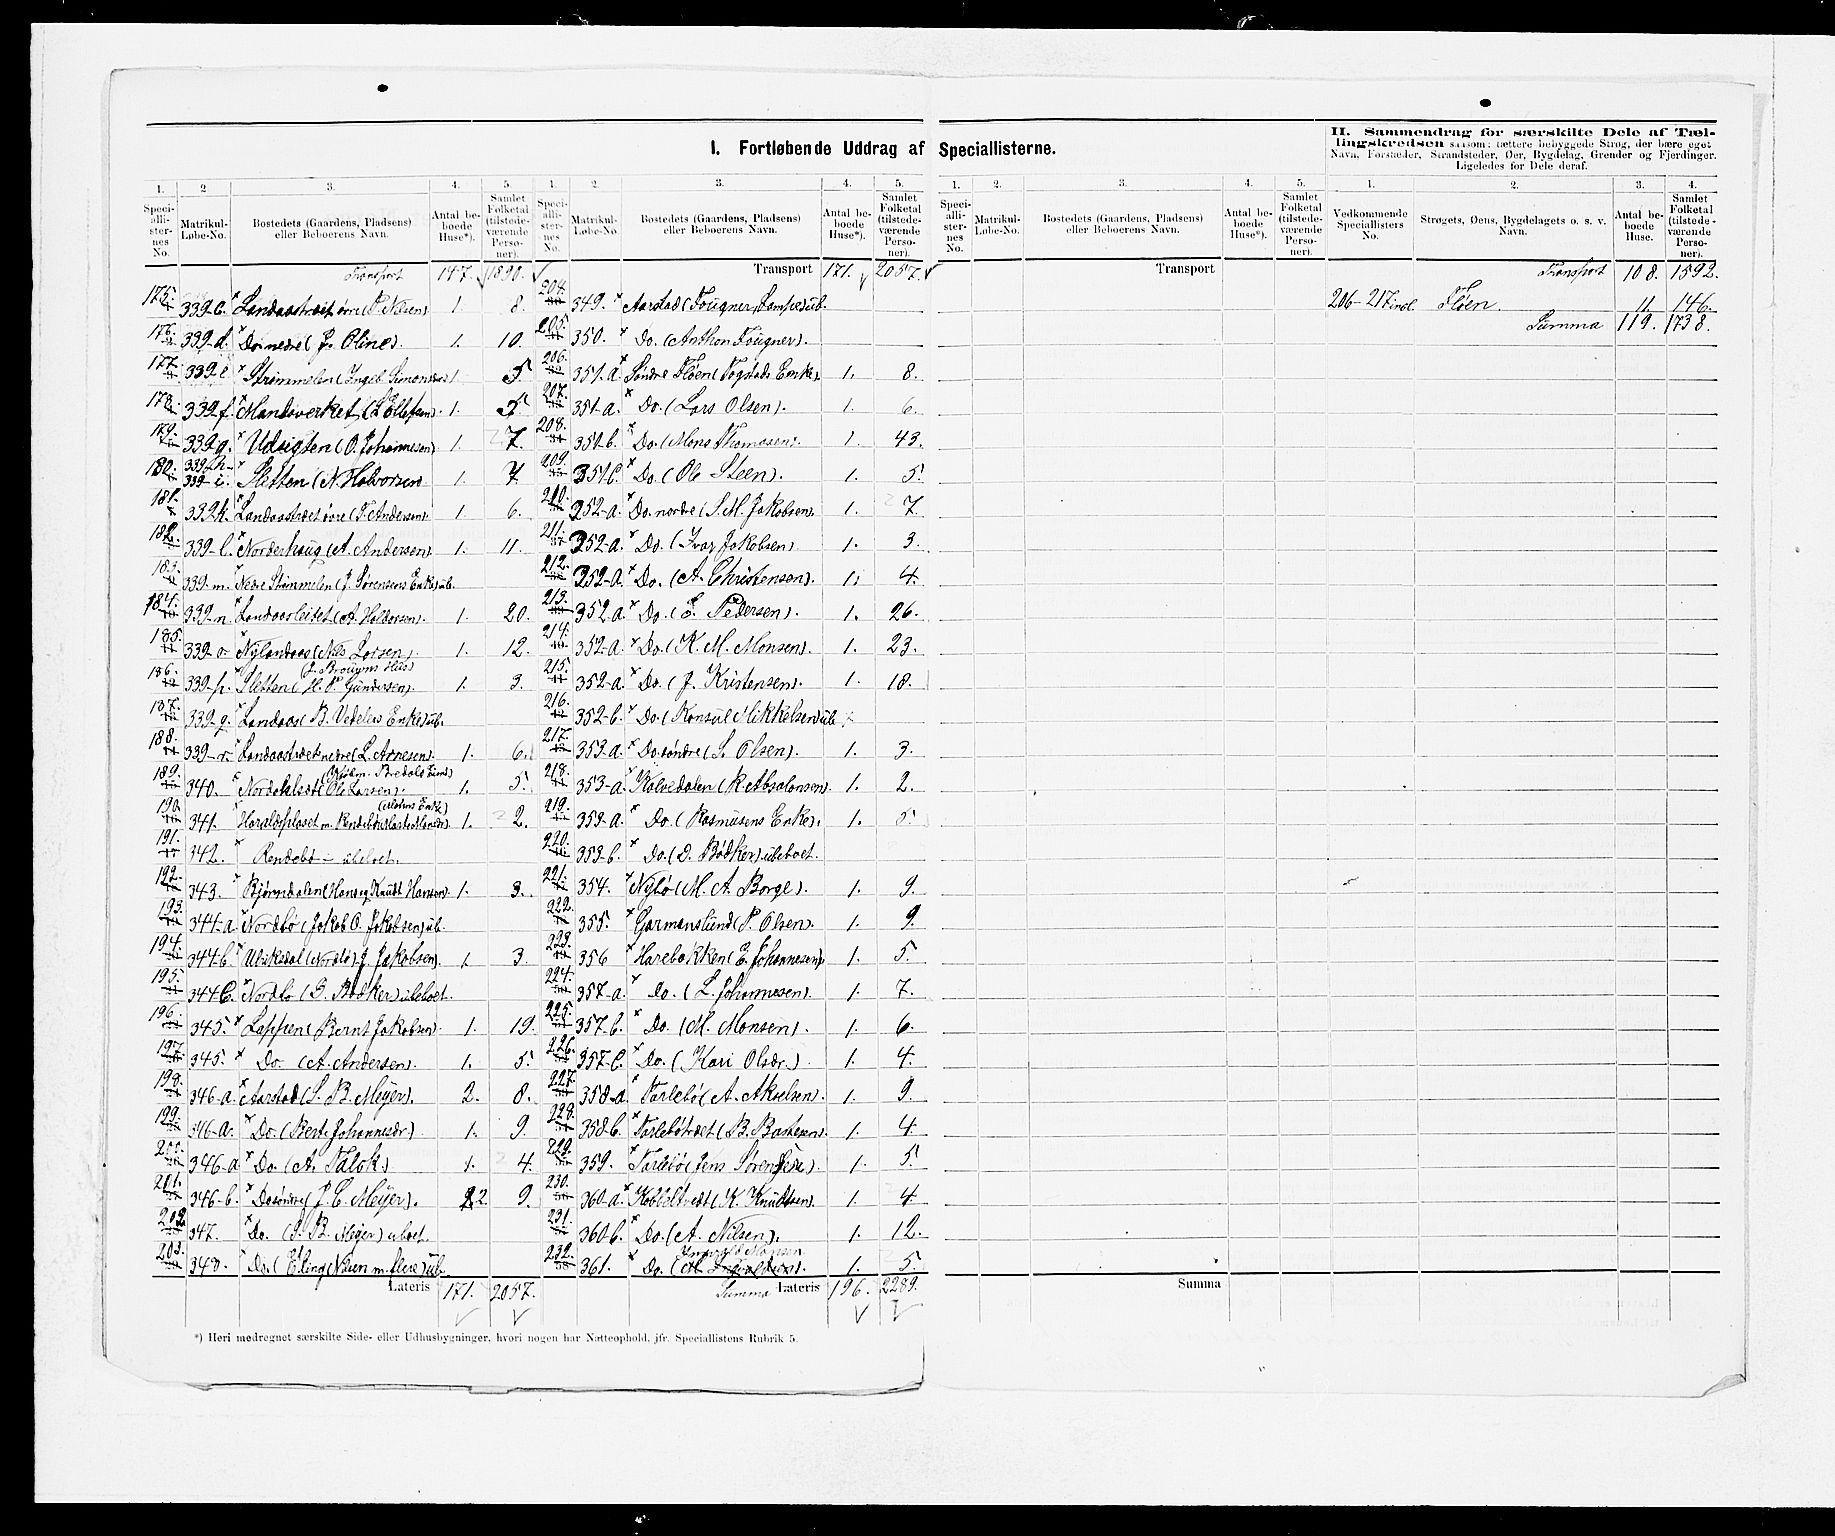 I. Fortløbende Uddrag af Speciallisterne.
II. Sammendrag for særskilte Dele af Tællingskredsen saasom: tættere bebyggede Strøg, der bære eget Navn, Forstæder, Strandsteder, Øer, Bygdelag, Grender og Fjerdinger. Ligeledes for Dele deraf.
1. 2 3. 4. 5. 1. 2. 3. 4. 5. 1. 2. 3. 4. 5. 1. 2. 3. 4.
Specialliisternes No. Matrikul-Løbe-No. Bostedets (Gaardens, Pladsens) eller Beboerens Navn. Antal beboede Huse*). Samlet Folketal (tilstedeværende Personer).
Speciallisternes No. Matrikul-Løbe-No. Bostedets (Gaardens, Pladsens) eller Beboerens Navn. Antal beboede Huse*). Samlet Folketal (tilstedeværende Personer).
Speciallisternes No. Matrikul-Løbe-No. Bostedets (Gaardens, Pladsens) eller Beboerens Navn. Antal beboede Huse*). Samlet Folketal (tilstedeværende Personer).
Vedkommende Speciallisters No. Strøgets, Øens, Bygdelagets o. s. v. Navn. Antal beboede Huse. Samlet Folketal (tilstedeværende Personer).
Transport 147. 1890.
175. 339-c. Landaastræet øvre (P. Næsen) 1 8.
176. 339-d. Do. nedre (J. Oline). 1. 10.
177. 339-e Strømmelen (Ingeb. Simonsdr.) 1 5.
178. 339-f. Mandsverket, (L. Ellefsen). 1. 5.
179. 339g. Udsigten (O. Johannesen) 1. 7.
180. 339-h- 339-i. Sletten (N. Halvorsen 1. 7
181. 339k. Landaastræet øvre (T. Andersen). 1 6.
182. 339-l. Norderhaug (A. Andersen). 1. 11.
183. 339-m. Nedre Strømmelen (J. Sørensens Enke) ub.
184. 339-n. Landaasleitet (A. Haldorsen). 1. 20.
185. 339-o- Nylandaas (Nils Larsen). 1. 12.
186. 339-p. Sletten (H. P. Gundersen). 1. 3.
187. 339-q. Landaas (B. Vedelers Enke) ub.
188. 339-r. Landaastrædet nedre (L. Arnesen). 1. 6.
189. 340. Nordahlsdt (Ole Larsen). 1. 5.
190. 341. Haraldsplasset m. 1. 2.
191. 342. Rendebø – ubeboet.
192. 343. Bjørndalen (Hans og Knudt Hansen). 1. 3.
193. 344-a Nordbø (Jakob O. Jakobsen) ub.
194. 344b. Ulriksdal (Nordbø) J. Jakobsen). 1. 3.
195. 344C. Nordbø (D. Bødker) ubeboet.
196. 345. Lappen (Bernt Jakobsen). 1. 19.
197. 345. Do. (A. Andersen). 1. 5.
198. 346-a. Aarstad (S. B. Meyer). 2. 8.
199. 346-a. Do. (Berte Johannesdr) 1. 9.
200. 346-a Do. (A. Falck) 1. 4.
201. 346-b. Do søndre (J. C. Meyer). 2 9.
202. 347. Do. (S. B. Meyer) uboet.
203. 348. Do. (Elling Næsen m. flere) ub.
Lateris 171. 2057.
Transport 171. 2057.
204. 349. Aarstad (Fougner Lampe) ub.
205. 350. Do. (Anthon Fougner).
206. 351-a. Søndre Fløen (Fogstads Enke). 1. 8.
207. 351-a. Do. (Lars Olsen). 1. 6.
208. 351-b. Do. (Mons Thomasen). 1. 43.
209. 351C. Do. (Ole Steen). 1. 5.
210. 352-a. Do. nordre (S. M. Jakobsen). 1. 7.
211. 352-a. Do. (Ivar Jakobsen) 1. 3.
212. 352-a. Do. (A. Christensen). 1. 4.
213. 352-a. Do. (E. Pedersen). 1. 26.
214. 352-a. Do. (K. M. Monsen). 1. 23.
215. 352-a. Do. (J. Kristensen). 1. 18.
216. 352-b. Do. (Konsul Mikkelsen) ub.
217. 353-a. Do. søndre (S. Olsen). 1. 3.
218. 353-a. Kalvedalen (R. Absalonsen). 1. 2.
219. 353-a. Do. (Rasmusens Enke). 1. 5.
220. 353-b. Do. (D. Bødker) ubeboet.
221. 354. Nybø (M. A. Borge). 1. 9.
222. 355. Garmanslund (P. Olsen). 1. 9.
223. 356 Harebakken (E. Johannesen) 1. 5.
224. 357-a. Do. (L. Johannesen). 1. 7.
225. 357-b. Do. (M. Monsen). 1. 6.
226. 357-C. Do. (Kari Olsdr.) 1. 4.
227. 358-a Tarlebø (A. Akselsen). 1. 9.
228. 358-b. Tarlebøtrædet (B. Bastesen). 1. 4.
229. 359. Tarlebø (Jens Sørensen). 1. 5.
230. 360-a. Kobbeltvedt (K. Knudtsen). 1. 4
231. 360b. Do. (A. Nilsen). 1. 12.
232. 361. Do. 1. 5.
Summa Lateris 196. 2289.
Transport
Summa
Transport 108. 1592.
206-217 incl. Fløen. 11. 146.
Summa 119. 1738.
*) Heri medregnet særskilte Side- eller Udhusbygninger, hvori nogen har Natteophold, jfr. Speciallistens Rubrik 5.